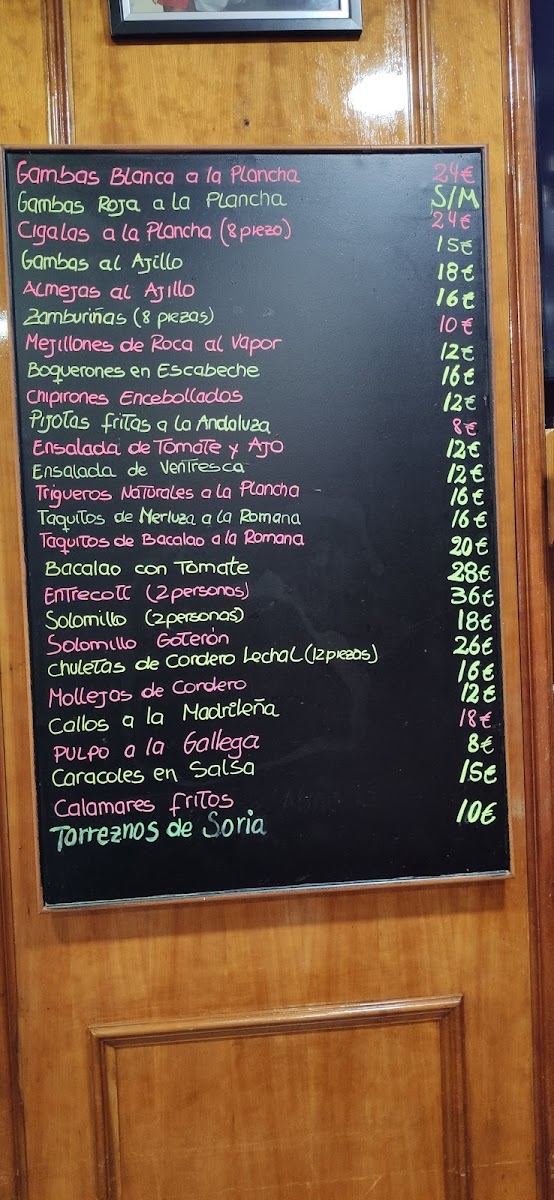 Gambas Blanca a la Plancha 24€
Gambas Roja a la Plancha S/M
Cigalas a la Plancha (8 piezo) 24€
Gambas al Ajillo 15€
Almejas al Ajillo 18€
Zamburiñas (8 piezas) 16€
Mejillones de Roca al Vapor 10€
Boquerones en Escabeche 12€
Chipirones Encebollados 16€
Pijotas fritas a la Andaluza 12€
Ensalada de Tomate y Ajo 8€
Ensalada de Ventresca 12€
Trigueros Naturales a la Plancha 12€
Taquitos de Merluza a la Romana 16€
Taquitos de Bacalao a la Romana 16€
Bacalao con Tomate 20€
Entrecott (2 personas) 28€
Solomillo (2 personas) 36€
Solomillo Goterón 18€
Chuletas de Cordero Lechal (12 piezas) 26€
Mollejos de Cordero 16€
Callos a la Madrileña 12€
Pulpo a la Gallega 18€
Caracoles en Salsa 8€
Calamares fritos 15€
Torreznos de Soria 10€